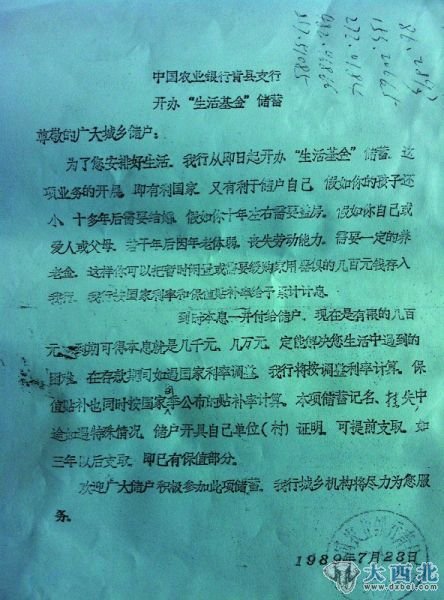 中国农业银行眉县支行
开办“生活基金”储蓄
尊敬的广大城乡储户:
为了您安排好生活,我行从即日起开办“生活基金”储蓄。这
项业务的开展,即有利国家,又有利于储户自己,假如你的孩子还
小,十多年后需要结婚,假如你十年左右需要盖房,假如你自己或
爱人或父母,若干年后因年老体弱,丧失劳动能力,需要一定的养
老金,这样你可以把暂时闲置或需要缓购家用器俱的几百元钱存入
我行,我行按国家利率和保值贴补率给于累计计息。
到时本息一并付给储户,现在是有限的几百
元,到期可得本息就是几千元、几万元,定能解决您生活中遇到的
困难,在存款期间如遇国家利率调整,我行将按调整利率计算。保
值贴补也同时按国家季公布的贴补率计算。本项储蓄记名、挂失中
途如遇特殊情况,储户开具自己单位(村)证明,可提前支取,如
三年以后支取,即已有保值部分。
欢迎广大储户积极参加此项储蓄,我行城乡机构将尽力为您服
务。
1989年7月23日
大西北
www.dxbei.com